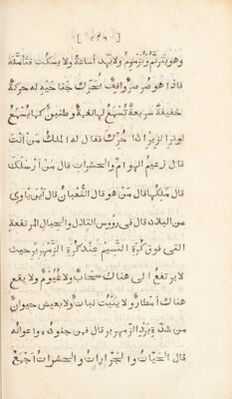 [ ٢٢٩ ]
وهو يترنم ويزمزم ولا يهدأ ساعة ولا يسكت فتأمله
فاذا هو صرصر واقف يحرك جناحيه له حركة
خفيفة سريعة تسمع لها نغمة وطنين كما يسمع
لوتر الزير اذا حرك فقال له الملك من انت
قال زعيم الهوام والحشرات قال من ارسلك
قال ملكها قال من هو قال الثعبان قال اين ياوي
من البلاد قال في رؤوس التلال والجبال المرتفعة
التي فوق كرة النسيم عند كرة الزمهرير حيث
لا يرتفع الى هناك سحاب ولا غيوم ولا يقع
هناك امطار ولا ينبت نبات ولا يعيش حيوان
من شدة برد الزمهرير قال فمن جنوده واعوانه
قال الحيات والجرارات والحشرات اجمع